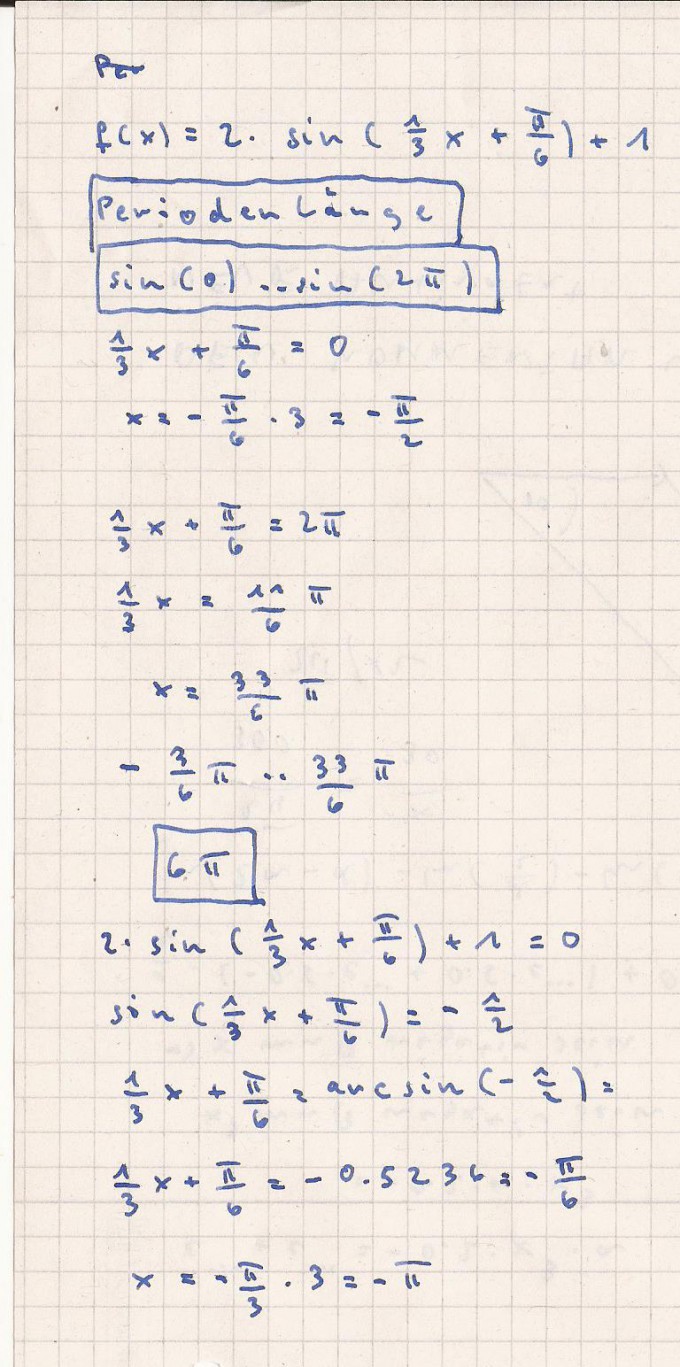 Per
f(x) = 2 · sin( 1/3 x + π/6 ) + 1
Periodenlänge
sin(0) .. sin(2π)
1/3 x + π/6 = 0
x = - π/6 · 3 = - π/2
1/3 x + π/6 = 2π
1/3 x = 11/6 π
x = 33/6 π
- 3/6 π .. 33/6 π
6π
2· sin( 1/3 x + π/6 ) + 1 = 0
sin( 1/3 x + π/6 ) = - 1/2
1/3 x + π/6 = arcsin(- 1/2) =
1/3 x + π/6 = - 0.5236 = - π/6
x = - π/3 · 3 = - π